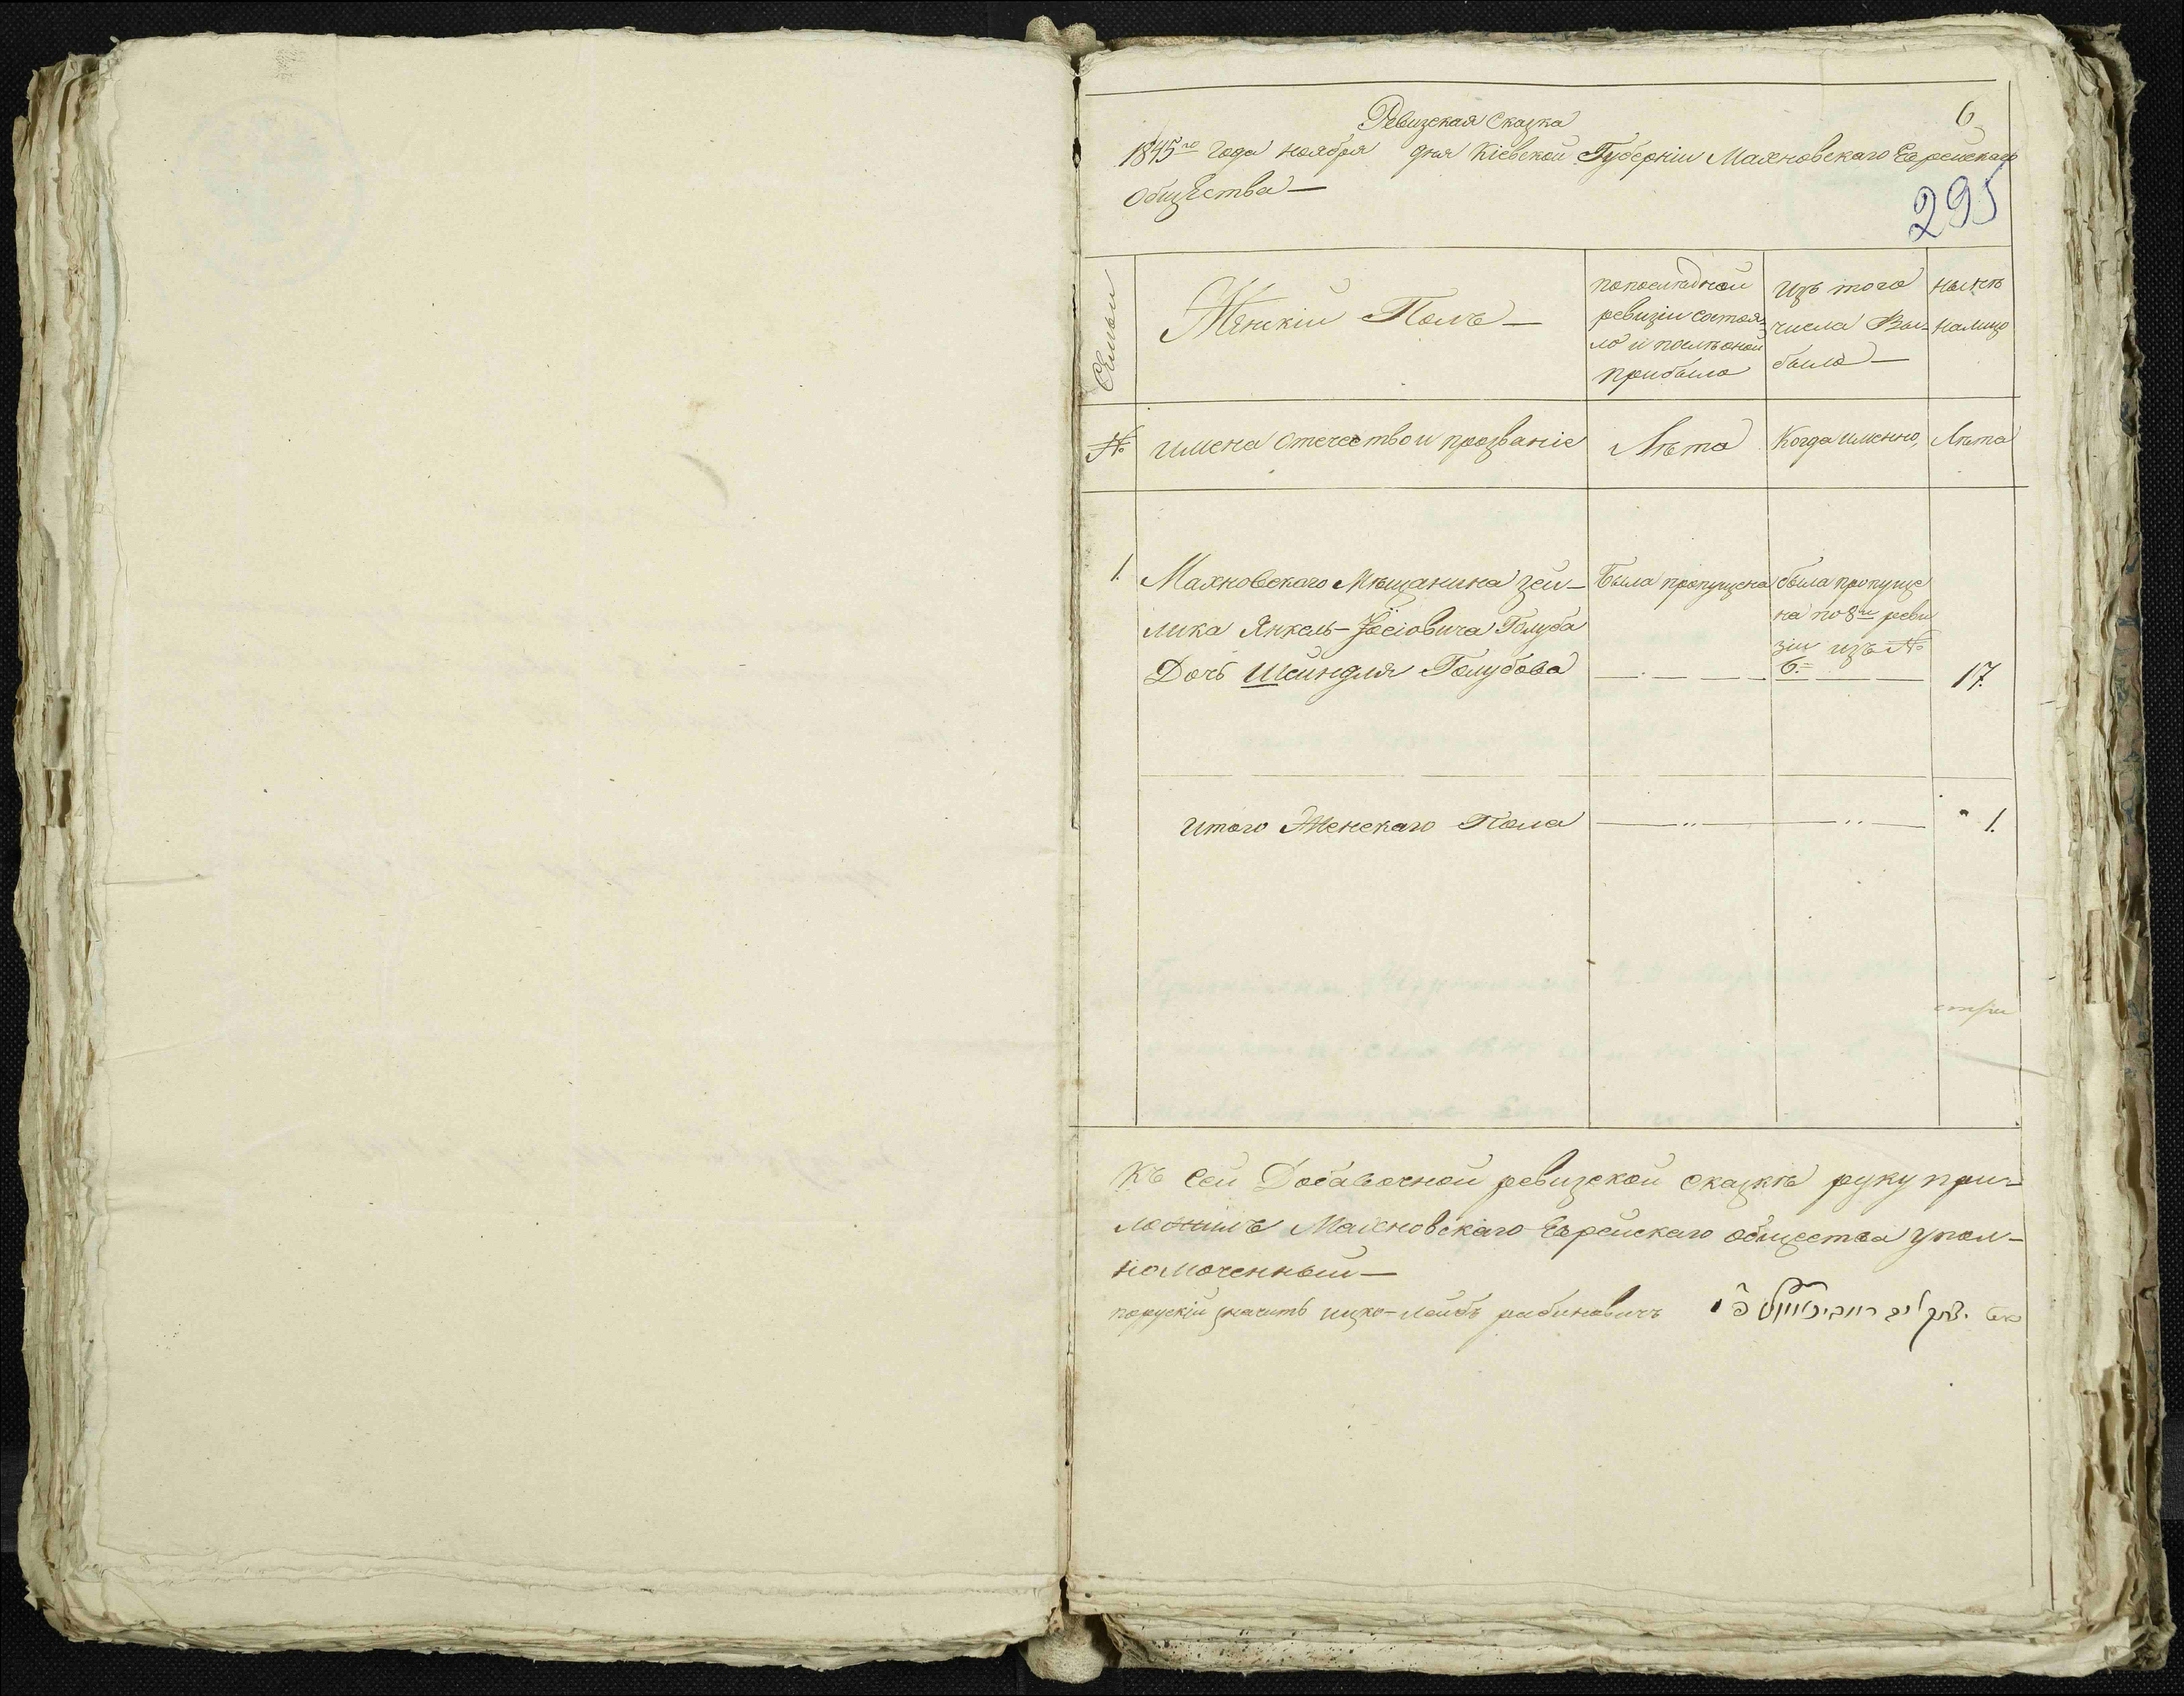 Ревизская Сказка
6
1845го года ноября дня Кіевской Губерніи Махновскаго Еврейскаго
общѣства —
295
Семьи
Женскій Полъ —
попослѣдней
ревизіи состоя-
ло и послѣ оной
прибыло
Изъ того
числа Вы-
было —
нынѣ
налицо
№
имена отечество и прозваніе
Лѣта
Когда именно,
Лѣта
1.
Махновскаго Мѣщанина Зей-
лика Янкель-Іосіовича Голуба
Дочь Шейндля Голубова
Была пропущена
была пропуще
на по 8й реви
зіи изъ №
6.
17.
итого Женскаго Пола
1.
Къ сей Добавочной ревизской сказкѣ руку при-
ложилъ Махновскаго Еврейскаго общества упол-
номоченный —
порускій значитъ ицко-лейбъ рабиновичъ